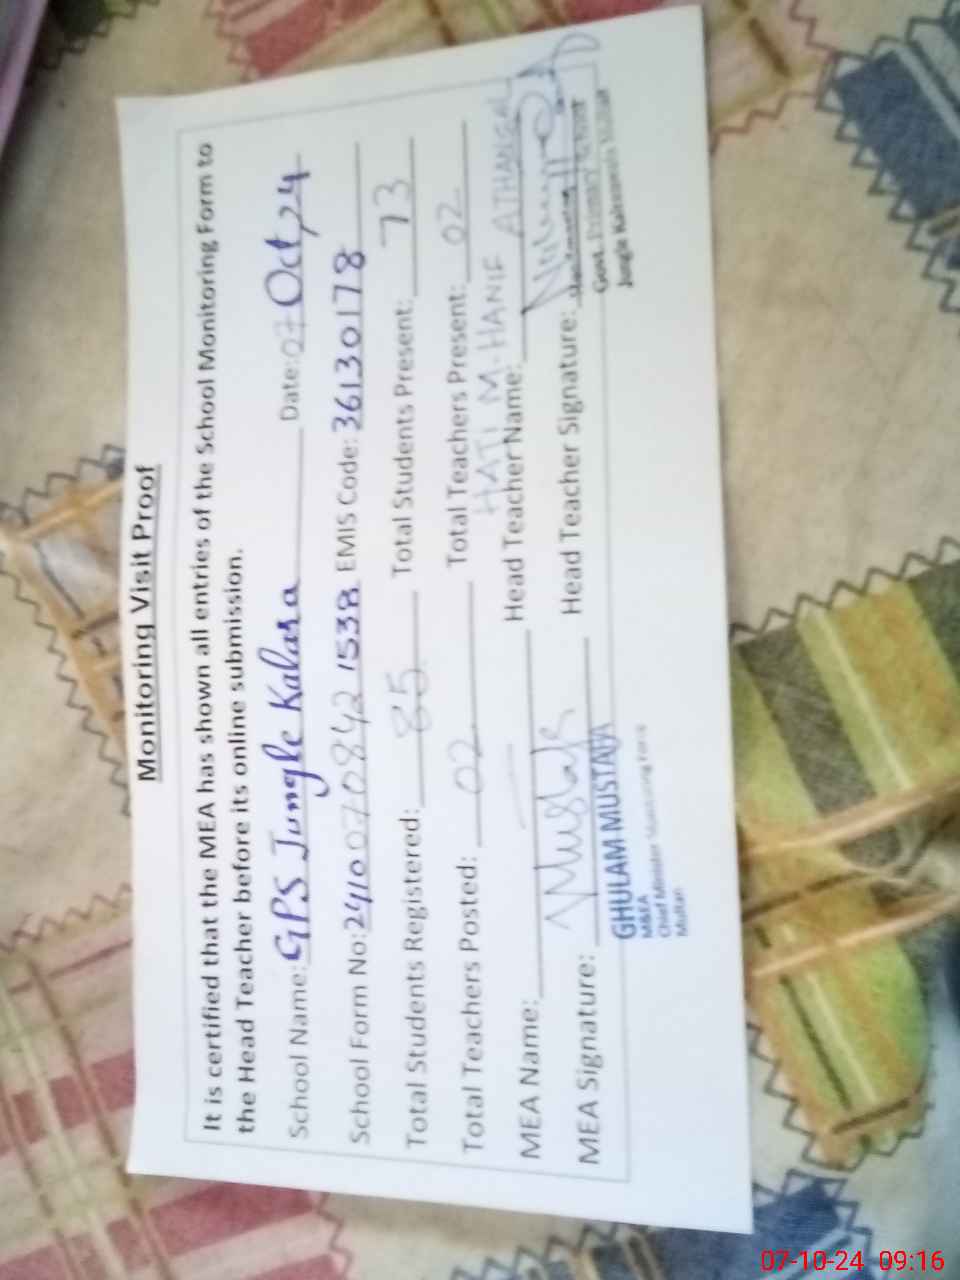 Monitoring Visit Proof
It is certified that the MEA has shown all entries of the School Monitoring Form to
the Head Teacher before its online submission.
School Name: GPS Jungle Kalara Date: 07 Oct, 24
School Form No: 24100707842 1538 EMIS Code: 36130178
Total Students Registered: 85 Total Students Present: 73
Total Teachers Posted: 02 Total Teachers Present: 02
MEA Name: Head Teacher Name: HATI M. HANIF ATHANGAL
MEA Signature: Mustafa Head Teacher Signature:
GHULAM MUSTAFA
M&EA
Chief Minister Monitoring Force
Multan
Govt. Primary School
Jungle
07-10-24 09:16